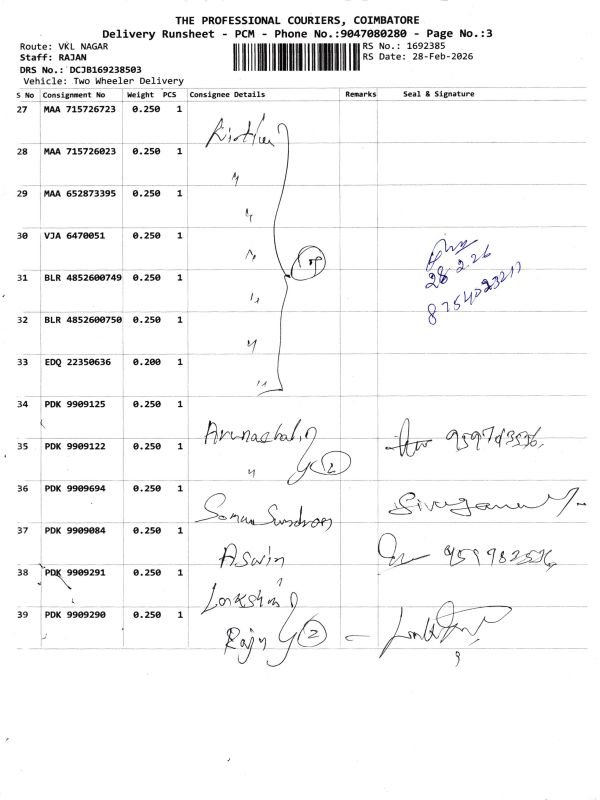 THE PROFESSIONAL COURIERS, COIMBATORE
Delivery Runsheet - PCM - Phone No.:9047080280 - Page No.:3
Route: VKL NAGAR
RS No.: 1692385
Staff: RAJAN
RS Date: 28-Feb-2026
DRS No.: DCJB169238503
Vehicle: Two Wheeler Delivery
S No Consignment No Weight PCS Consignee Details Remarks Seal & Signature
27 MAA 715726723 0.250 1
28 MAA 715726023 0.250 1
29 MAA 652873395 0.250 1
30 VJA 6470051 0.250 1
28.2.26
31 BLR 4852600749 0.250 1
32 BLR 4852600750 0.250 1
33 EDQ 22350636 0.200 1
34 PDK 9909125 0.250 1
Arunachal
35 PDK 9909122 0.250 1 " 2
36 PDK 9909694 0.250 1
37 PDK 9909084 0.250 1
Aswin
38 PDK 9909291 0.250 1
39 PDK 9909290 0.250 1
Raju 2